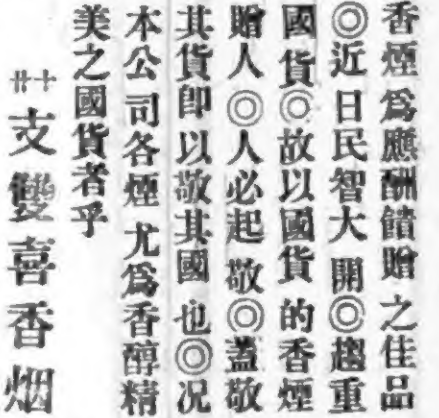 香煙爲應酬饋贈之佳品
◎近日民智大開◎趨重
國貨◎故以國貨的香煙
贈人◎人必起敬◎蓋敬
其貨卽以敬其國也◎况
本公司各煙尤爲香醇精
美之國貨者乎
十支廿支雙喜香烟